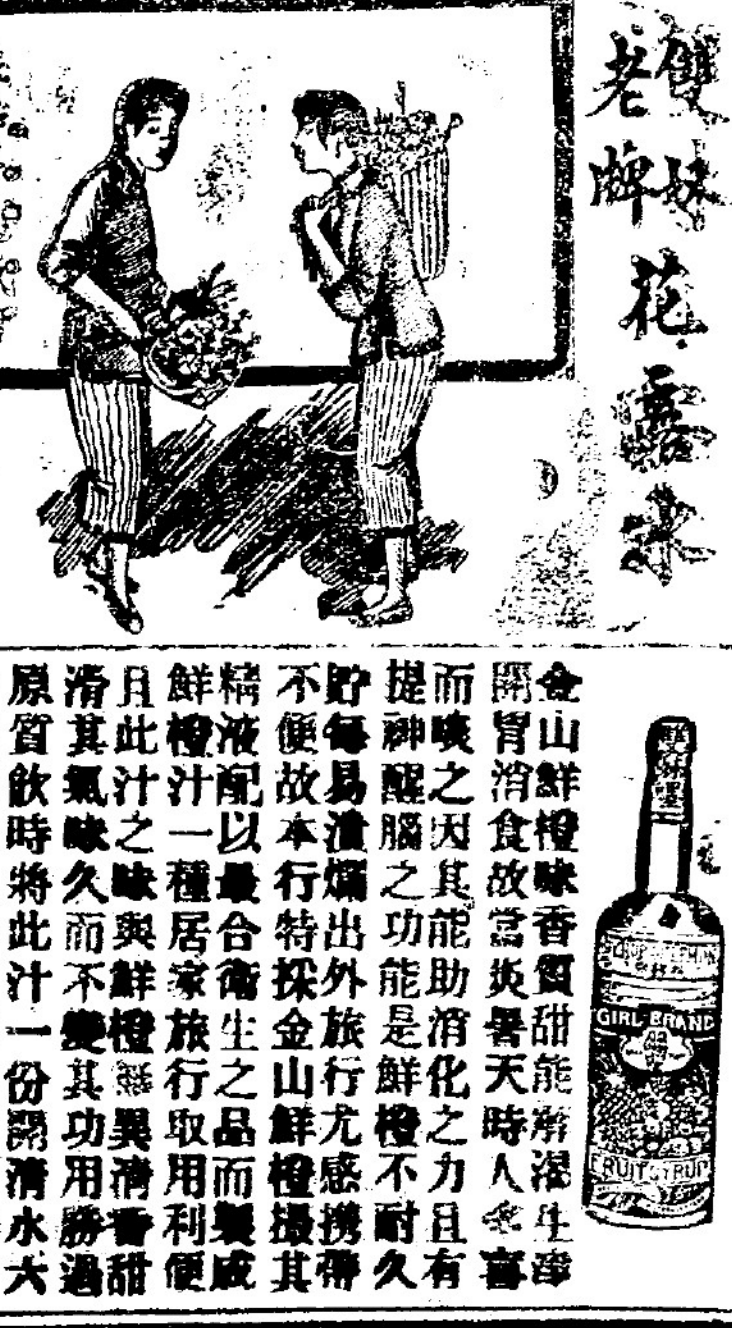 雙妹
老牌
花露水
金山鮮橙味香質甜能解渴生津
開胃消食故當炎暑天時人多喜
而啖之因其能助消化之力且有
提神醒腦之功能是鮮橙不耐久
貯每易潰爛出外旅行尤感携帶
不便故本行特採金山鮮橙撮其
精液配以最合衛生之品而製成
鮮橙汁一種居家旅行取用利便
且此汁之味與鮮橙無異清香甜
滑其氣味久而不變其功用勝過
原質飲時將此汁一份開清水六
雙妹嚜
GIRL BRAND
FRUIT SYRUP